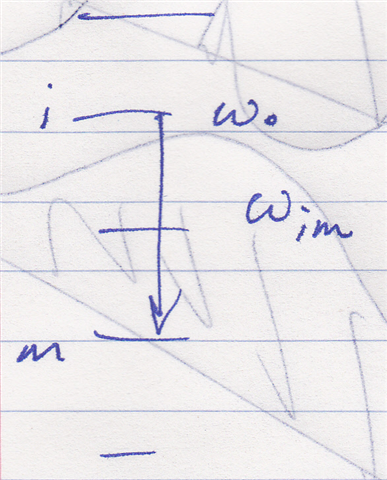 i ω₀
ω_im
m